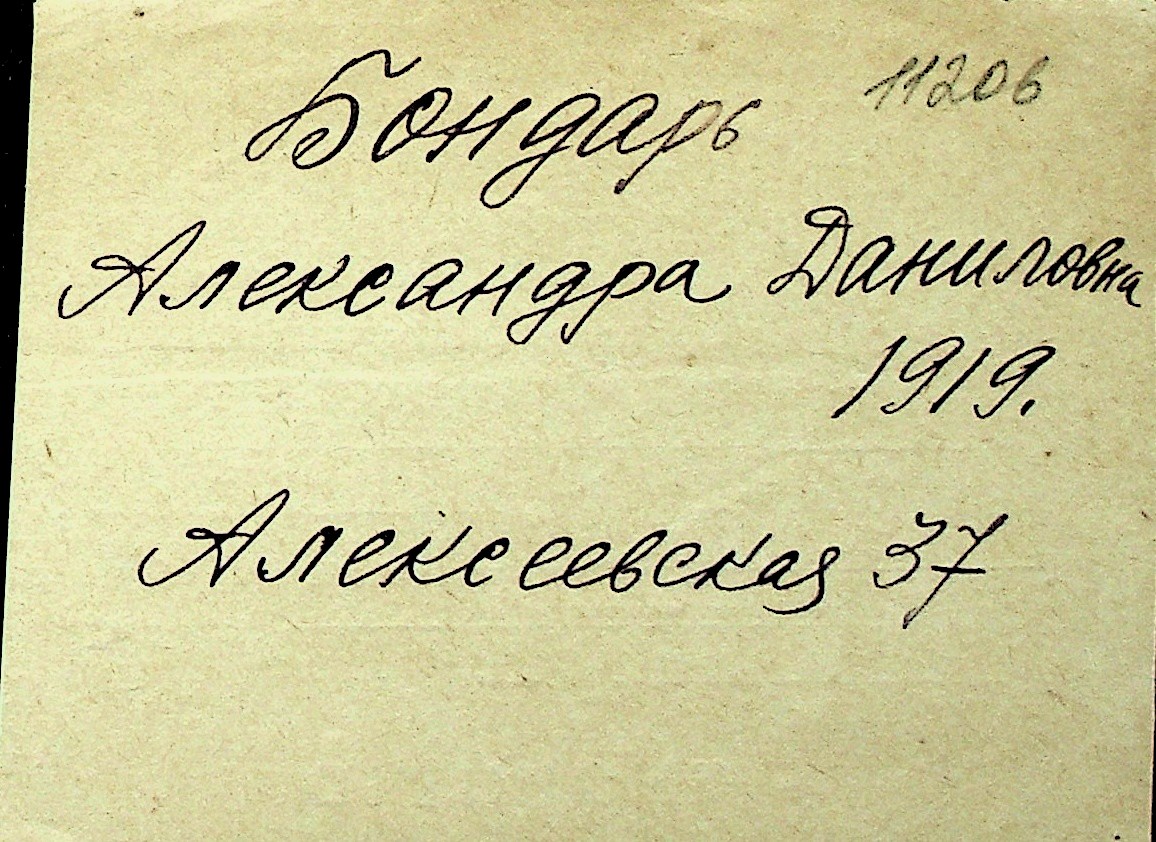 Бондарь 11206
Александра Даниловна
1919.
Алексеевская 37